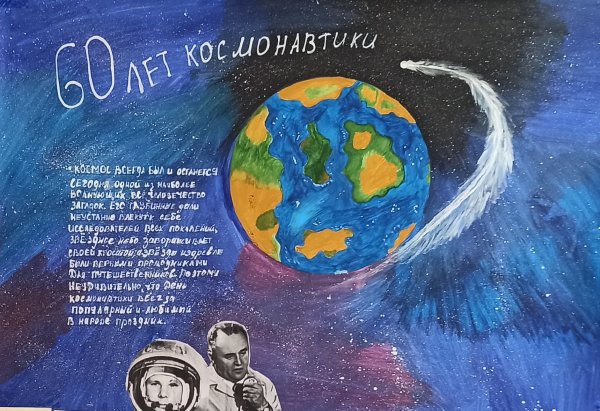 60 ЛЕТ КОСМОНАВТИКИ
КОСМОС ВСЕГДА БЫЛ И ОСТАНЕТСЯ
СЕГОДНЯ ОДНОЙ ИЗ НАИБОЛЕЕ
ВОЛНУЮЩИХ ВСЁ ЧЕЛОВЕЧЕСТВО
ЗАГАДОК. ЕГО ГЛУБИННЫЕ ДАЛИ
НЕУСТАННО ВЛЕКУТ К СЕБЕ
ИССЛЕДОВАТЕЛЕЙ ВСЕХ ПОКОЛЕНИЙ,
ЗВЁЗДНОЕ НЕБО ЗАВОРАЖИВАЕТ
СВОЕЙ КРАСОТОЙ, А ЗВЁЗДЫ ИЗДРЕВЛЕ
БЫЛИ ВЕРНЫМИ ПРОВОДНИКАМИ
ДЛЯ ПУТЕШЕСТВЕННИКОВ. ПОЭТОМУ
НЕУДИВИТЕЛЬНО, ЧТО ДЕНЬ
КОСМОНАВТИКИ ВСЕГДА
ПОПУЛЯРНЫЙ И ЛЮБИМЫЙ
В НАРОДЕ ПРАЗДНИК.